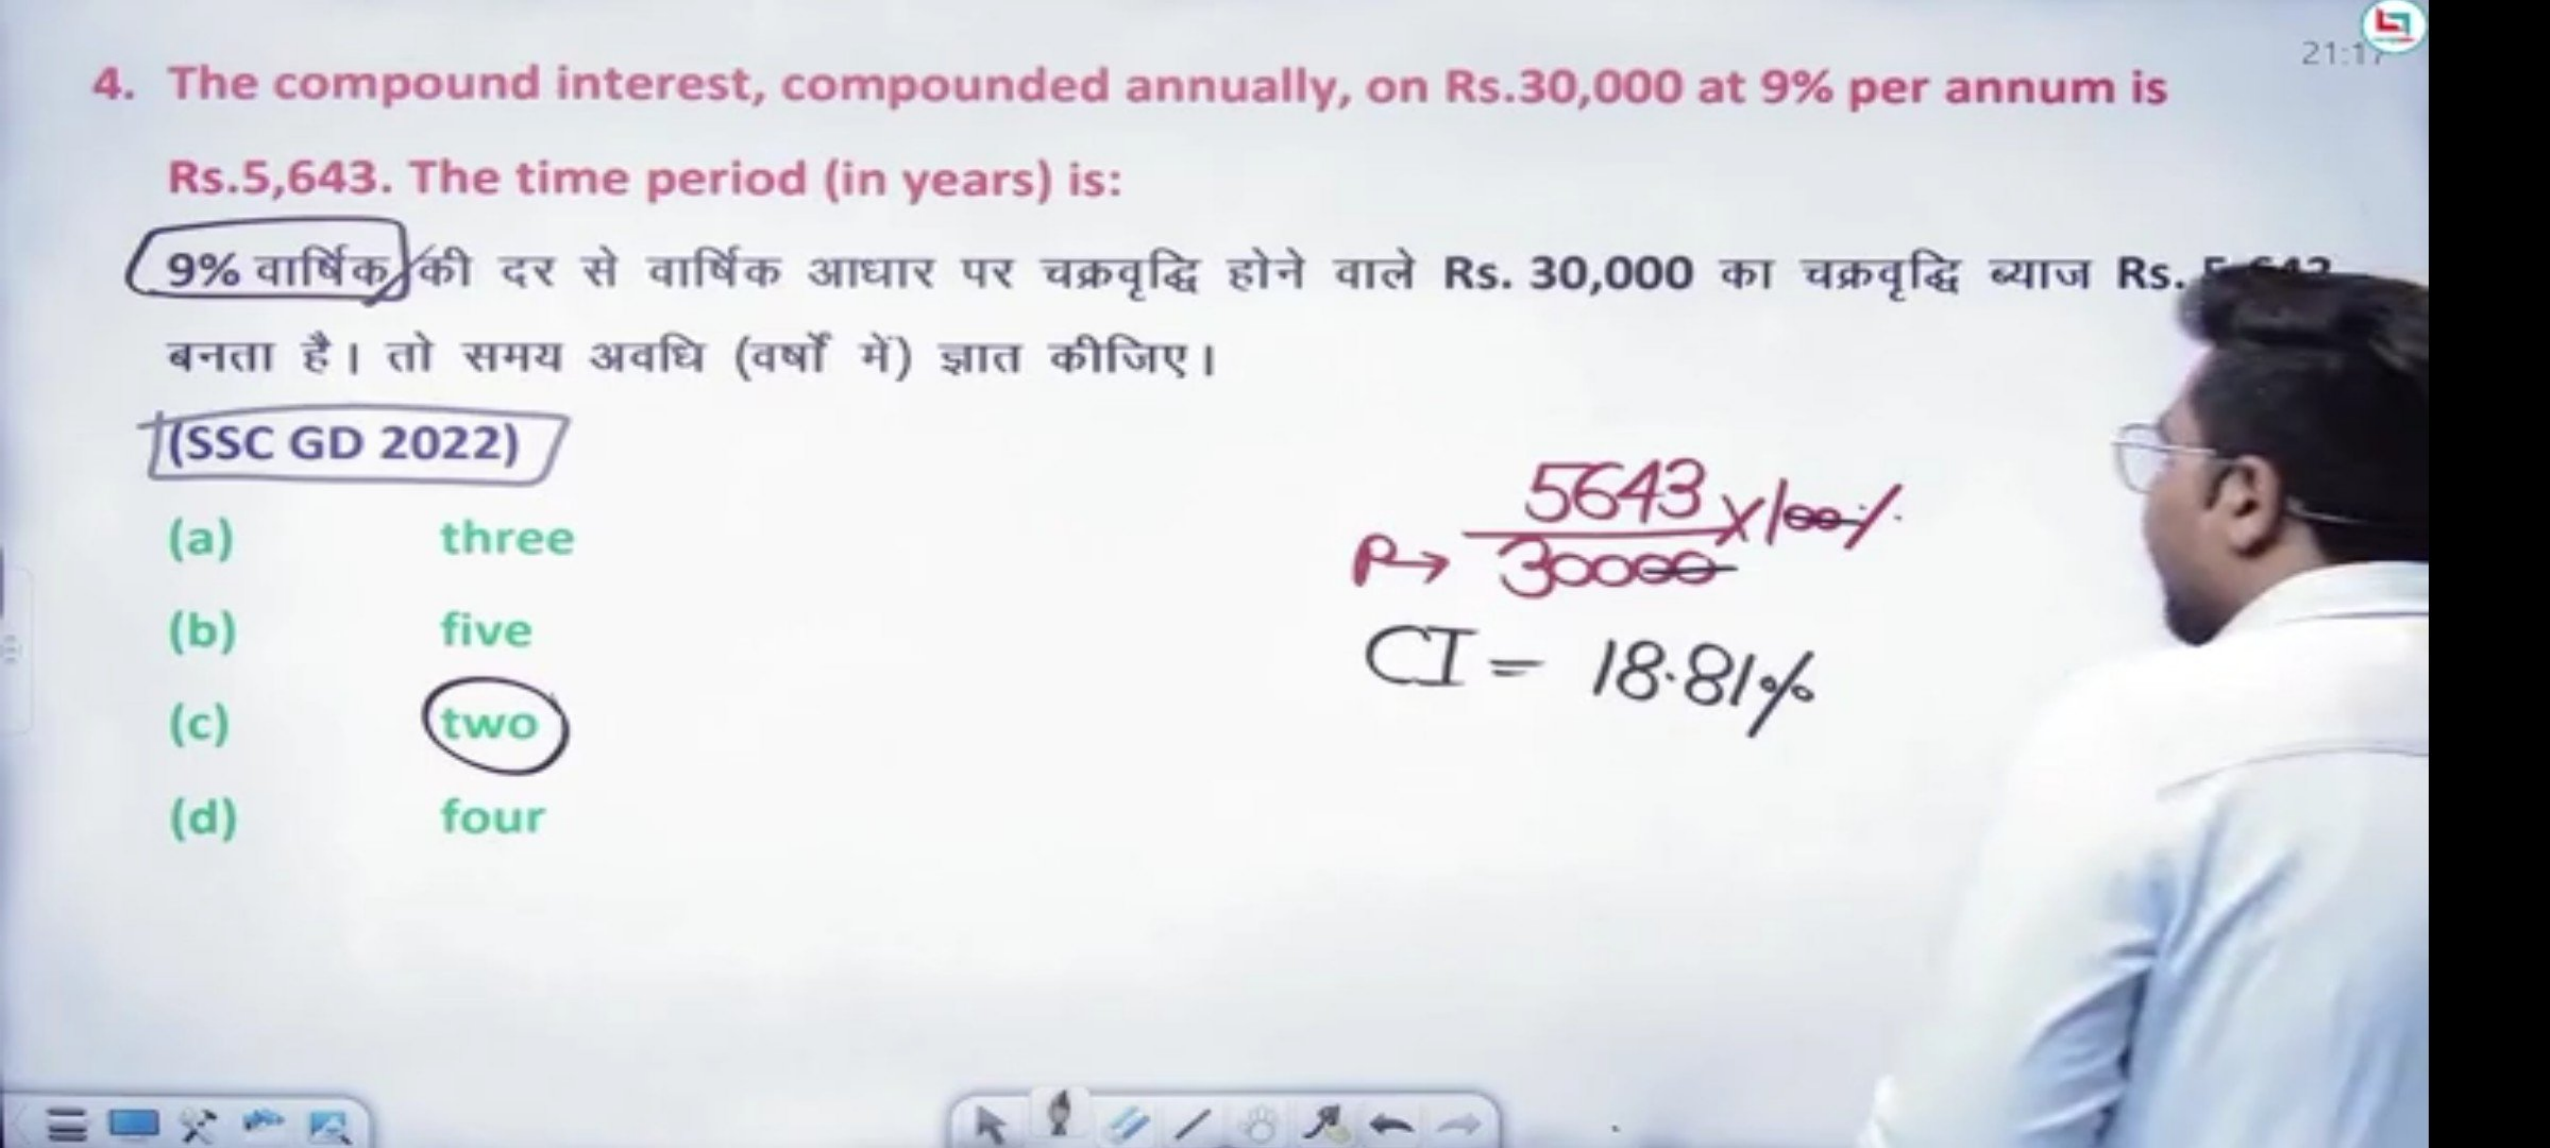 4. The compound interest, compounded annually, on Rs.30,000 at 9% per annum is
Rs.5,643. The time period (in years) is:
9% वार्षिक की दर से वार्षिक आधार पर चक्रवृद्धि होने वाले Rs. 30,000 का चक्रवृद्धि ब्याज Rs.
बनता है। तो समय अवधि (वर्षों में) ज्ञात कीजिए।
(SSC GD 2022)
(a) three
(b) five
(c) two
(d) four
5643 ×100%
P→ 30000
CI = 18.81%